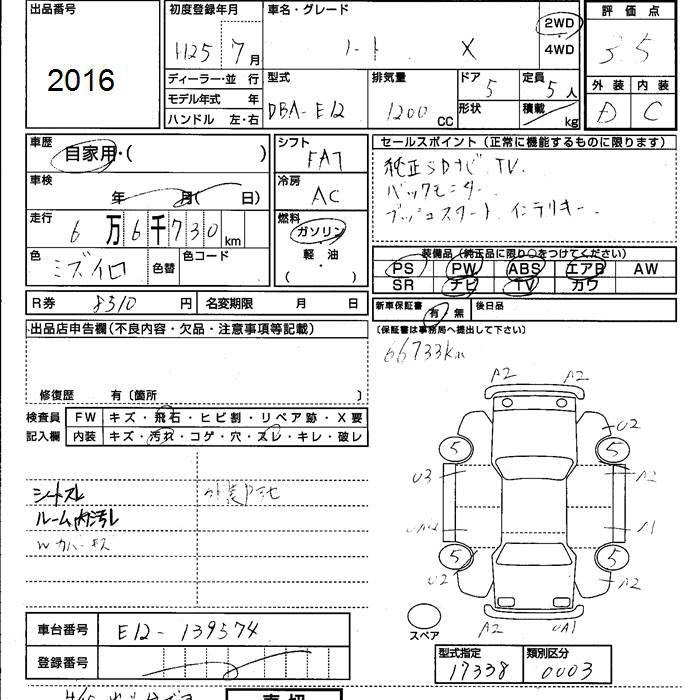 出品番号
2016
初度登録年月
H25 7月
車名・グレード
ノート X
2WD
4WD
評価点
3.5
外装 内装
D C
ディーラー・並行
モデル年式 年
ハンドル 左・右
型式
DBA-E12
排気量
1200 CC
ドア
5
形状
定員
5人
積載
kg
車歴
自家用・( )
車検
年 月( 日)
走行
6万6千730km
色
ミズイロ
色替
色コード
シフト
FAT
冷房
AC
燃料
ガソリン
軽・油
( )
セールスポイント(正常に機能するものに限ります)
純正SDナビ TV
バックモニター
プッシュスタート インテリキー
装備品(純正品に限り○をつけてください)
PS PW ABS エアB AW
SR ナビ TV カワ
R券 8310 円
名変期限 月 日
新車保証書 有・無
後日品
(保証書は事務局へ提出して下さい)
出品店申告欄(不良内容・欠品・注意事項等記載)
修復歴 有〔箇所 〕
66733km
検査員
記入欄
FW キズ・飛石・ヒビ割・リペア跡・X要
内装 キズ・汚れ・コゲ・穴・スレ・キレ・破レ
シートスレ
ルーム内汚レ
Wカバーキズ
A2 A2
U2
5 5
U3 A2
A1
5 5
U2 A2
A2 UA1
スペア
車台番号 E12-139574
登録番号
型式指定 類別区分
17338 0003